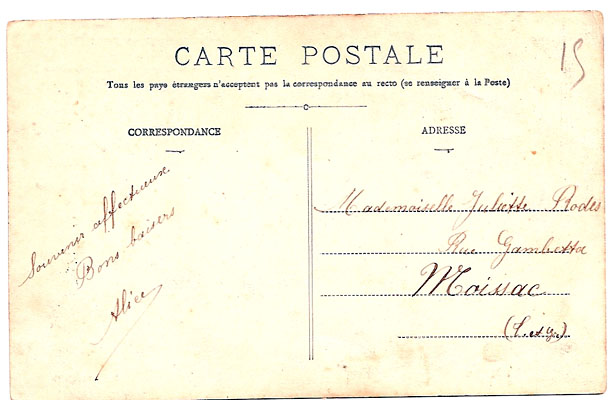 15
CARTE POSTALE
Tous les pays étrangers n'acceptent pas la correspondance au recto (se renseigner à la Poste)
CORRESPONDANCE
ADRESSE
Souvenir affectueux
Bons baisers
Alice
Mademoiselle Juliette Rodes
Rue Gambetta
Moissac
(T. et G.)